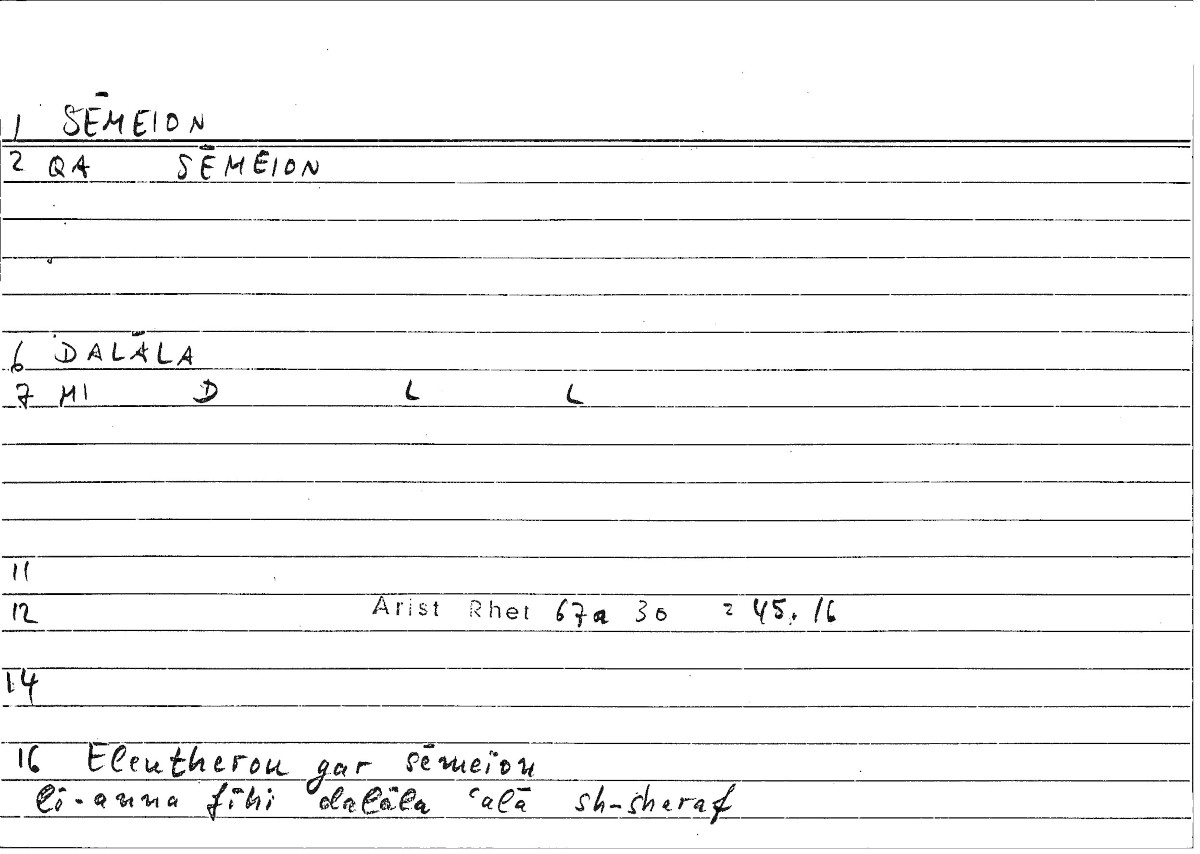 1 SĒMEION
2 QA SĒMEION
6 DALĀLA
7 MI D L L
11
12 Arist Rhet 67a 30 = 45,16
14
16 Eleutherou gar sēmeion
li-anna fīhi dalāla ʿalā sh-sharaf